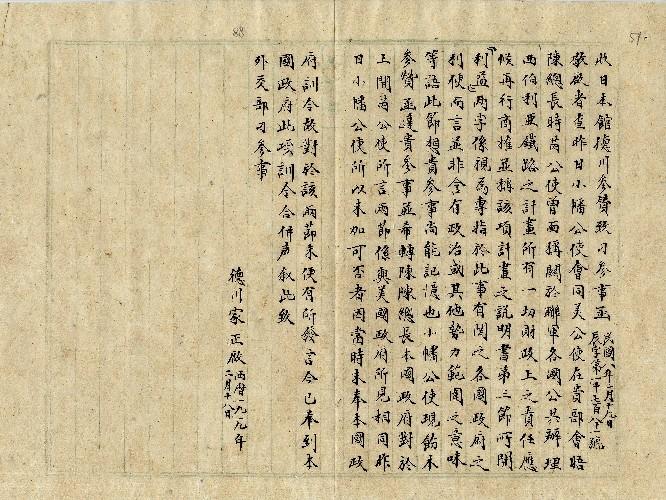 59
收日本館德川參贊致刁參事函 民國八年二月十九日
辰字第一千七百八十一號
敬啟者查昨日小幡公使會同美公使在貴部會晤
陳總長時芮公使曾面稱關於聯軍各國公共辦理
西伯利亞鐵路之計畫所有一切財政上之責任應
候再行商榷並稱該項計畫之說明書第三節所開
利益兩字係視為專指於此事有關之各國政府之
利便而言並非含有政治或其他勢力範圍之意味
等語此節想貴參事尚能記憶也小幡公使現飭本
參贊函達貴參事並希轉陳陳總長本國政府對於
上開芮公使所言兩節係與美國政府所見相同昨
日小幡公使所以未加可否者因當時未奉本國政
88
府訓令故對於該兩節未便有所發言今已奉到本
國政府此項訓令合併聲敘此致
外交部刁參事
德川家正啟 西曆一九一九年
二月十八日